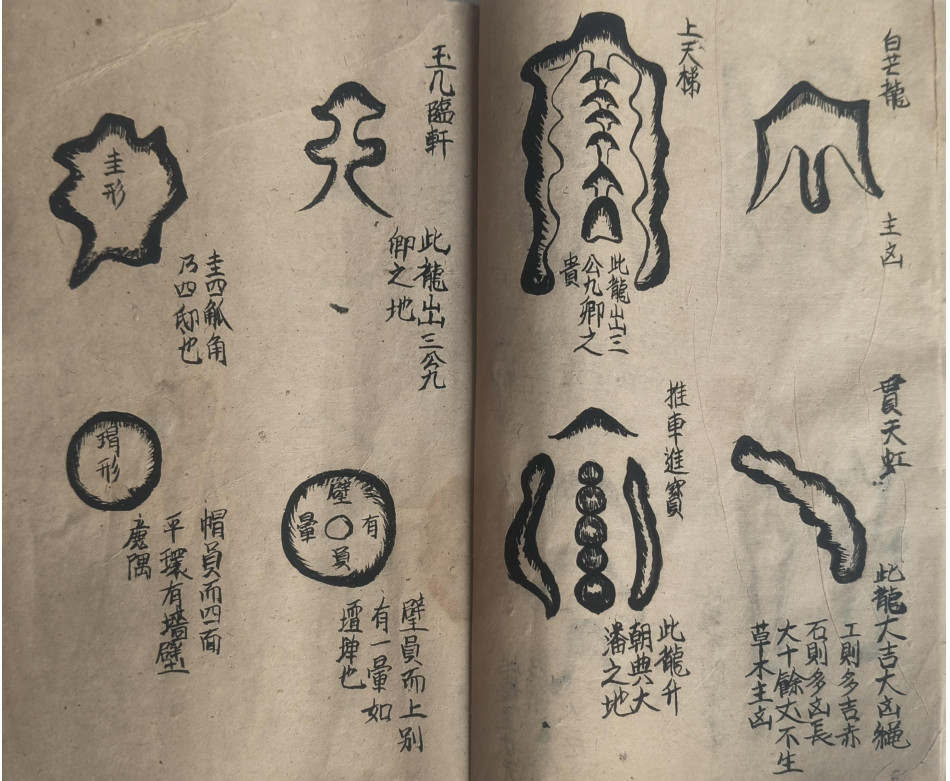 白芒龍
主凶
貫天虹
此龍大吉大凶繩
工則多吉赤
石則多凶長
大十餘丈不生
草木主凶
上天梯
此龍出三
公九卿之
貴
推車進寳
此龍升
朝典大
藩之地
玉几臨軒
此龍出三公九
卿之地
有
璧
員
暈
璧員而上别
有一暈如
壇埤也
圭形
圭四觚角
乃四邸也
瑁形
帽員而四面
平環有墻壁
廉隅